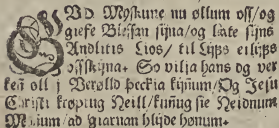 GVD Myskune nu øllum oss/og
giefe Blessan sijna/og late sijns
Andlitis Lios/til Lijfs eilijfs
oss skijna. So vilja hans og ver
ken øll j Verølld þeckia kijnum/Og Jesu
Christi kroptug Neill/kunug sie Heidnum
Mønum/ad giarnan blijde hønum.